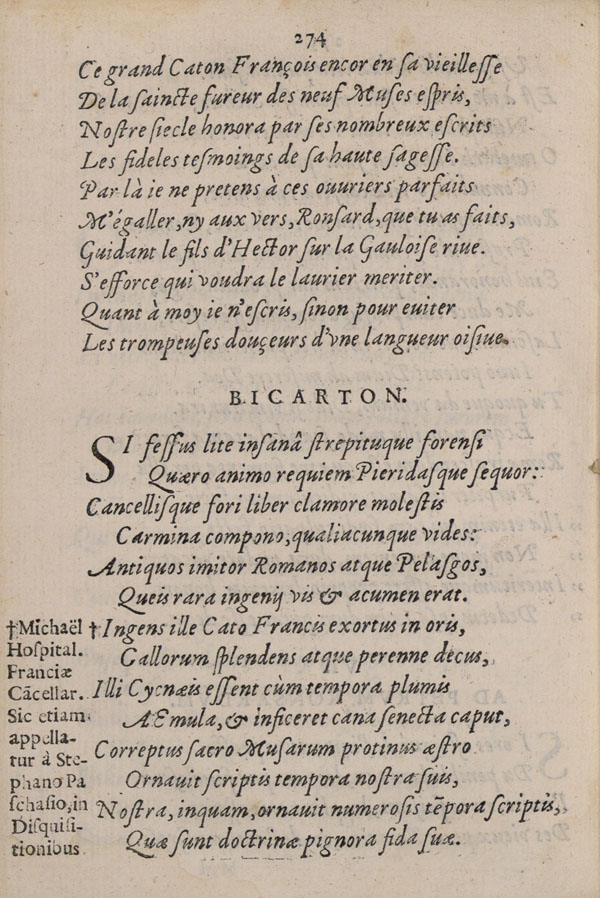 274
Ce grand Caton François encor en sa vieillesse
De la saincte fureur des neuf Muses espris,
Nostre siecle honora par ses nombreux escrits
Les fideles tesmoings de sa haute sagesse.
Par là ie ne pretens à ces ouuriers parfaits
M'égaller, ny aux vers, Ronsard, que tu as faits,
Guidant le fils d'Hector sur la Gauloise riue.
S'efforce qui voudra le laurier meriter.
Quant à moy ie n'escris, sinon pour euiter
Les trompeuses douçeurs d'vne langueur oisiue.
BICARTON.
SI fessus lite insanâ strepituque forensi
Quæro animo requiem Pieridasque sequor:
Cancellisque fori liber clamore molestis
Carmina compono, qualiacunque vides:
Antiquos imitor Romanos atque Pelasgos,
Queis rara ingenij vis & acumen erat.
† Ingens ille Cato Francis exortus in oris,
Gallorum splendens atque perenne decus,
Illi Cycnæis essent cùm tempora plumis
AEmula, & inficeret cana senecta caput,
Correptus sacro Musarum protinus æstro
Ornauit scriptis tempora nostra suis,
Nostra, inquam, ornauit numerosis tēpora scriptis,
Quæ sunt doctrinæ pignora fida suæ.
†Michaël
Hospital.
Franciæ
Cācellar.
Sic etiam
appella-
tur à Ste-
phano Pa
schasio, in
Disquisi-
tionibus